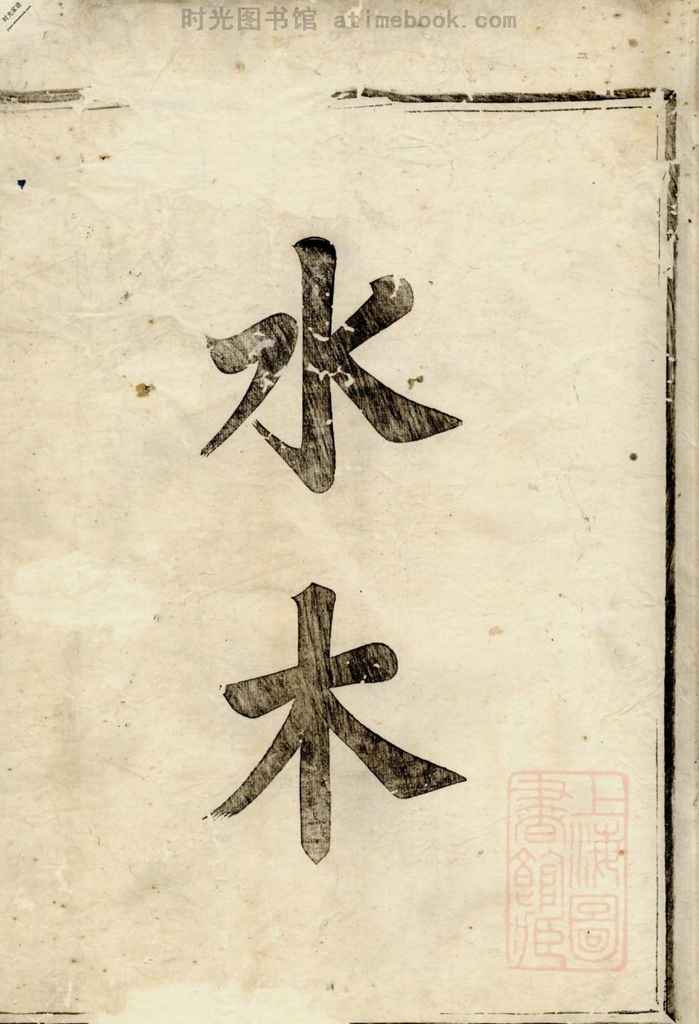 时光图书馆 atimebook.com
水
木
上海圖
書館藏